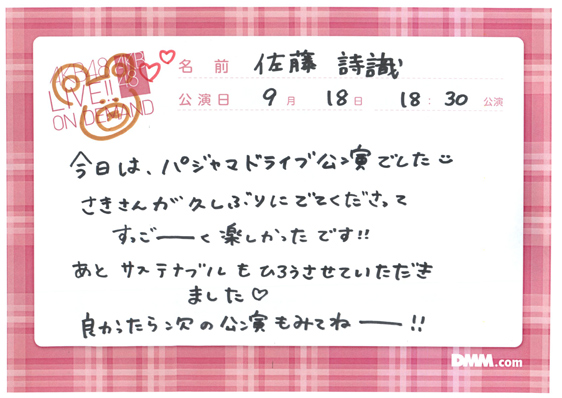 AKB48
LIVE!!
ON DEMAND
AKB
48
名前 佐藤 詩識
公演日 9月 18日 18:30 公演
今日は、パジャマドライブ公演でした
さきさんが久しぶりにでてくださって
すっごーーく楽しかったです!!
あと サステナブルもひろうさせていただき
ました♡
良かったら次の公演もみてねーー!!
DMM.com